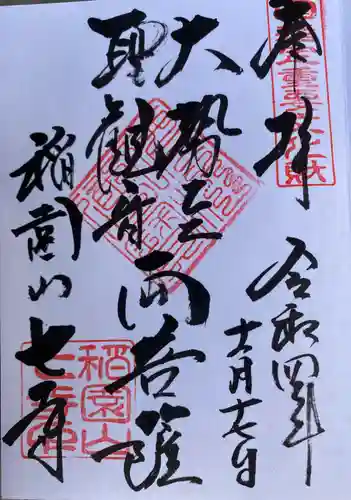 奉拝
令和四年
十一月十七日
大勢至
聖観音
両菩薩
稲園山
七寺
稲園山
七寺印